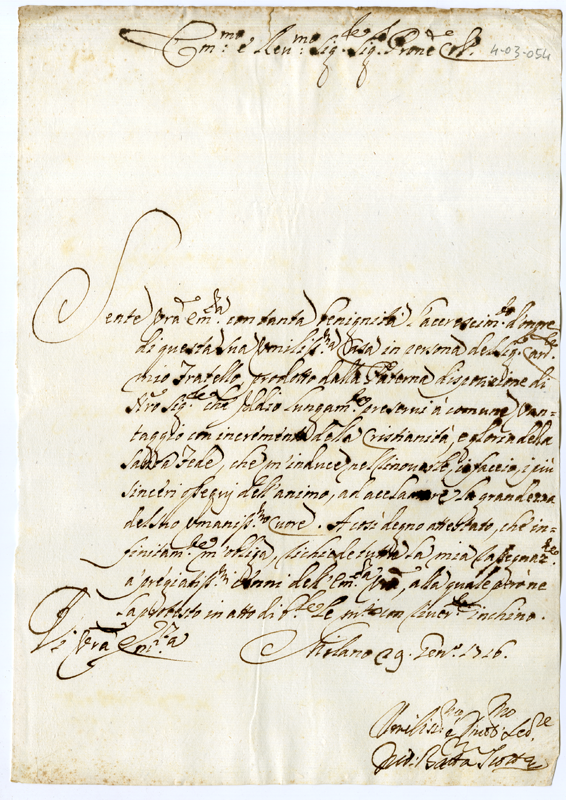 Em:mo e Ren:mo Sig:re Sig:re Prone Col:mo
4-03-054
Sente Vra Em:za con tanta benignità l'accrescim:to d'onore
di questa sua Umiliss:ma Casa in persona del Sig:r Car:le
mio fratello, prodotto dalla Paterna disposizione di
Nro Sig:re che Iddio lungam:te preservi à comune van-
taggio con incremento della Cristianità, e gloria della
Santa Fede, che m'induce nell'
sinceri ossequj dell'animo, ad acclamare la grandezza
del suo Umaniss:mo Cuore. A così degno attestato, che in-
finitam:te m'obliga, richiede tutta la mia
a pregiatiss:mi Cenni dell'Em:za Vra, alla quale
la protesto in atto di con river:te inchino.
Di Vra Em:za
Milano 29. Gen:o 1716.
Umiliss:mo Dev:mo Obb:mo Ser:re
Gio: Batta Scotti